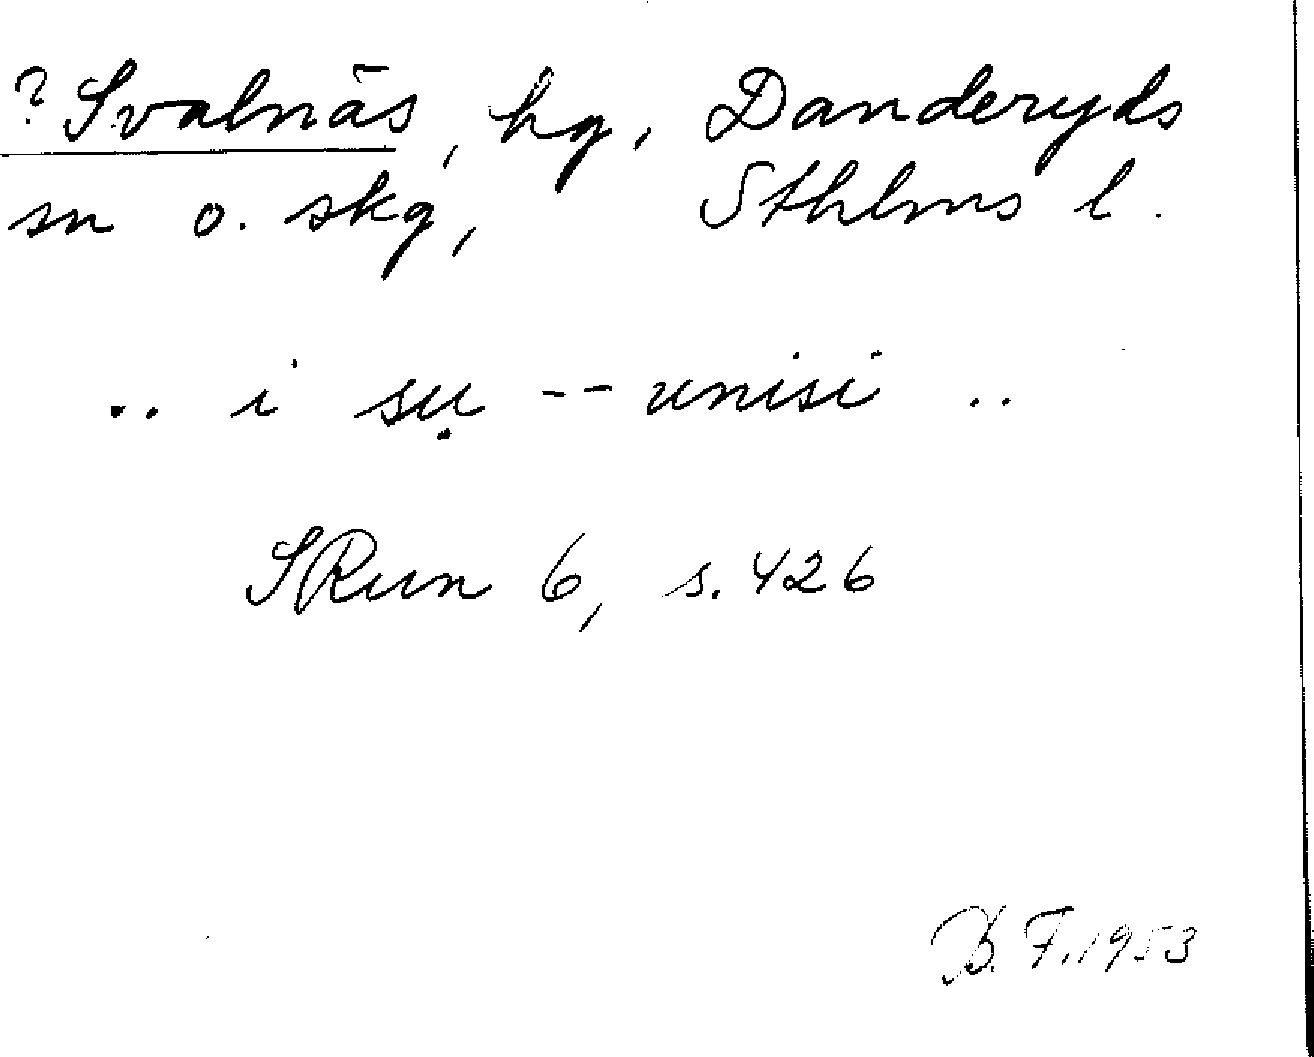 ? Svalnäs, hg, Danderyds
sn o. skg, Sthlms l.
.. i sụ -- unisi ..
SRun 6, s. 426
B. F. 1953